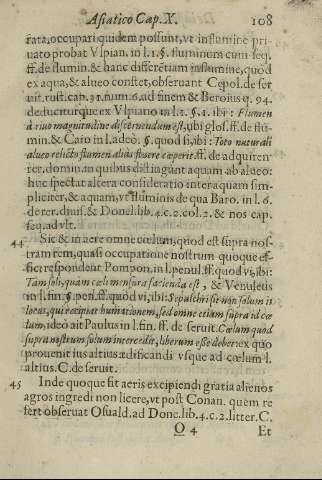 Asiatico Cap. X. 108
rata, occupari quidem possunt, vt in flumine pri-
uato probat Vlpian. in l. 1. §. fluminum cum seq.
ff. de flumin. & hanc differẽtiam in flumine, quòd
ex aqua, & alueo constet, obseruant Cepol. de ser
uit. rust. cap. 31. num. 6. ad finem & Beroius q. 94.
deduciturque ex Vlpiano in l. 1. §. 1. ibi: Flumen
à riuo magnitudine discernendum est, vbi glos. ff. de flu-
min. & Caio in l. adeò. §. quod si, ibi: Toto naturali
alueo relicto flumen aliùs fluere cœperit ff. de adquiren
rer. domin. in quibus distingunt aquam ab alueo:
huc spectat altera consideratio inter aquam sim-
pliciter, & aquam, vt fluminis de qua Baro. in l. 6.
de rer. diuis. & Donel. lib. 4. c. 2. col. 2. & nos cap.
seq. ad vlt.
44 Sic & in aere omne cœlum, quod est supra nos-
tram rem, quasi occupatione nostrum quoque ef-
fici respondent Pompon. in l. penul. ff. quod vi, ibi:
Tam soli, quàm cœli mensura facienda est, & Venuleius
in l. fin. §. pen. ff. quòd vi, ibi: Sepulchri sit non solum is
locus, qui recipiat humationem, sed omne etiam supra id cœ
lum, ideò ait Paulus in l. fin. ff. de seruit. Cœlum quod
supra nostrum solum intercedit, liberum esse debet: ex quo
prouenit ius altius ædificandi vsque ad cœlum l.
altius. C. de seruit.
45 Inde quoque fit aeris excipiendi gratia alienos
agros ingredi non licere, vt post Conan. quem re
fert obseruat Osuald. ad Done. lib. 4. c. 2. litter. C.
Q 4 Et